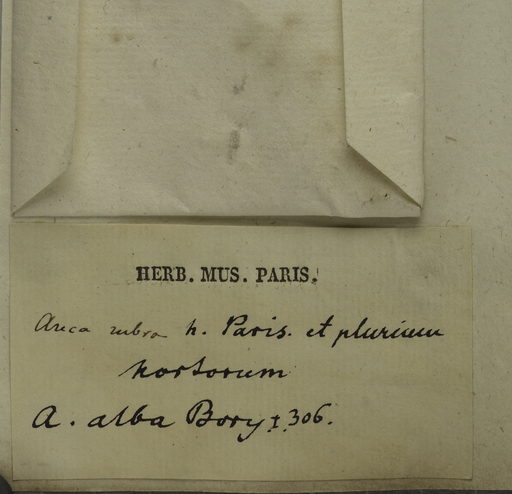 HERB. MUS. PARIS.
Areca rubra h. Paris. et plurium
hortorum
A. alba Bory 1. 306.